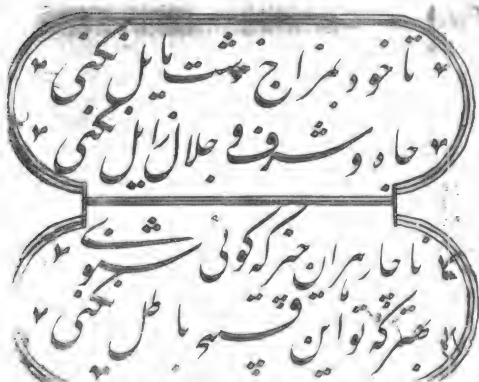 تا خود بمزاج پشت مایل نکنی
جاه و شرف و جلال زایل نکنی
ناچار هران چیز که گوئی شنوی
بهتر که تو این باطل نکنی